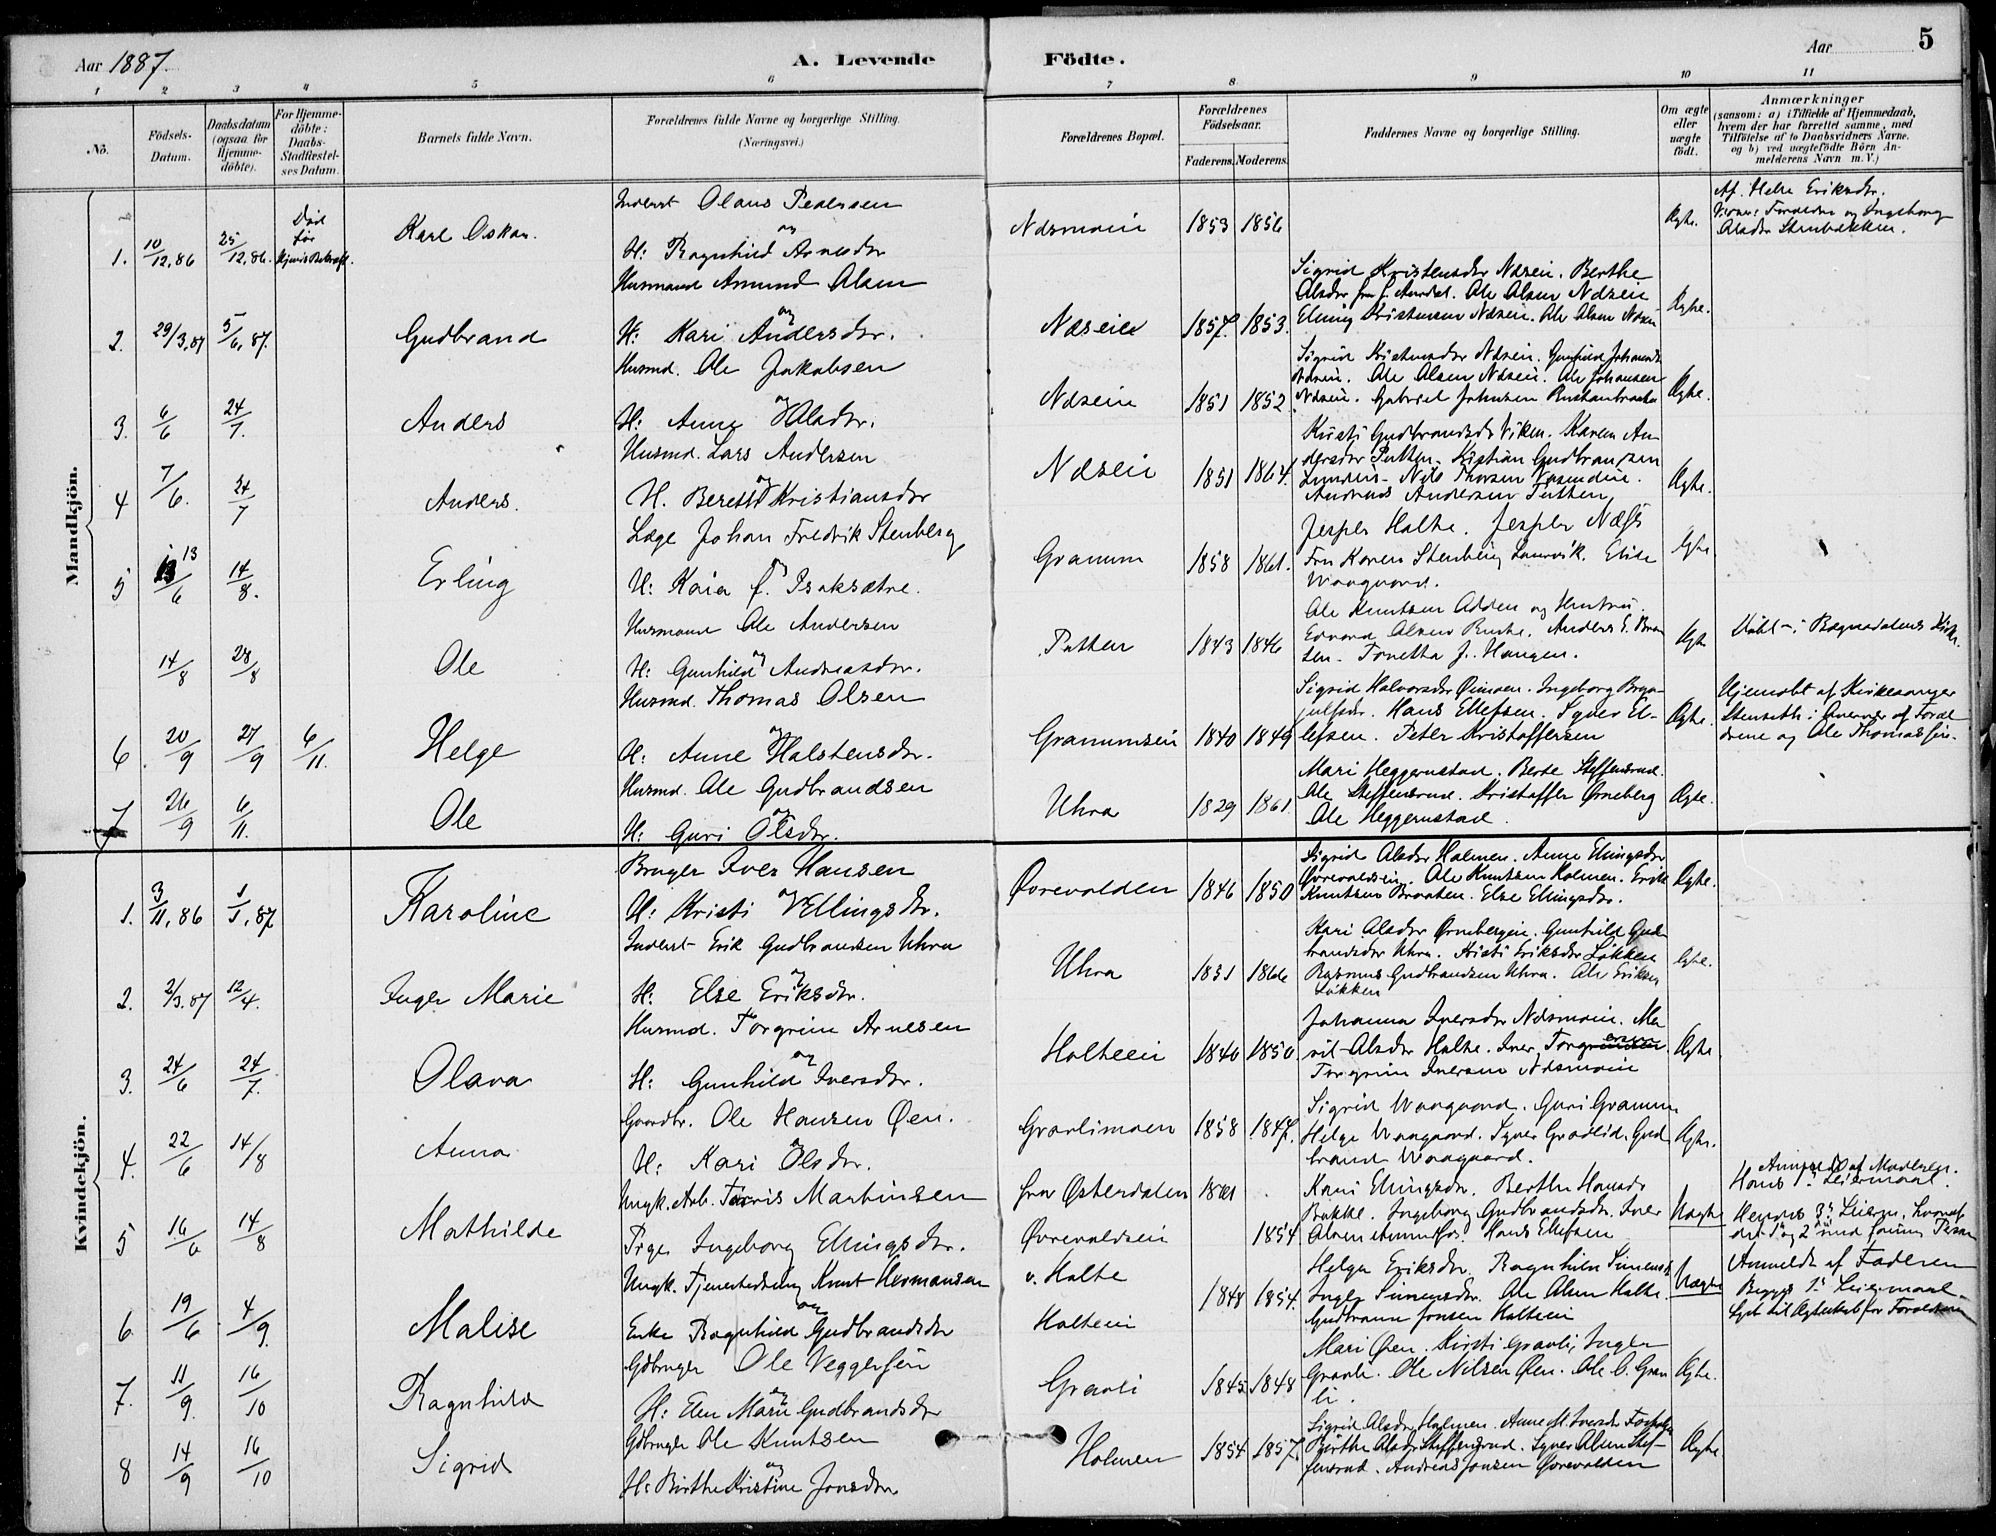 Aar 1887
A. Levende Födte.
Aar 5
1 2 3 4 5 6 7 8 9 10 11
No.
Födsels-Datum.
Daabsdatum (ogsaa for Hjemme-döbte).
For Hjemme-döbte: Daabs-Stadfæstel-ses Datum.
Barnets fulde Navn.
Forældrenes fulde Navne og borgerlige Stilling. (Næringsvei.)
Forældrenes Bopæl.
Forældrenes Födselsaar.
Faderens. Moderens.
Faddernes Navne og borgerlige Stilling.
Om ægte eller uægte födt.
Anmærkninger
(saasom: a) i Tilfælde af Hjemmedaab,
hvem der har forrettet samme, med
Tilföielse af to Daabsvidners Navne.
og b) ved uægtefödte Börn An-
melderens Navn m. V.)
Mandkjön.
1. 10/12.86 25/12.86. Död før
Karl Oskar.
Inderst Olaus Pedersen
og
H: Ragnhild Arnesdr
Næsmoin 1853 1856
Ægte.
Af Helse Eriksdr.
Vidner: Forældre og Ingeborg
Olsdr Stenbakken.
2. 29/3.87 5/6.87.
Gudbrand
Husmand Amund Olsen
og
H: Kari Andersdr.
Næseie 1857. 1853.
Sigrid Kristensdr Næsei. Berthe
Olsdr fra S. Aurdal. Ole Olsen Næseie
Elling Kristensen Næsei. Ole Olsen Næsei
Ægte.
3. 6/6 24/7.
Anders
Husmd. Ole Jakobsen
og
H: Anne Olsdr.
Næseie 1851 1852
Sigrid Kristensdr Næsei. Gunhild Johannesdr
Næsei. Ole Olsen Næsei. Ole Johansen
Næsei. Gabriel Johnsen
Ægte.
4 7/6. 24/7
Anders.
Husmd. Lars Andersen
og
H. Berette Kristiansdr
Næseie 1851 1864.
Kristi Gudbrandsdr Viken. Karen An-
dersdr Putten. Kristian Gudbransen
Nils Thorsen
Andreas Andersen Putten
Ægte.
5 13/6 14/8.
Erling
Læge Johan Fredrik Stenberg
og
H: Kaia f. Isaksætre.
Granum 1858 1861.
Jesper Halte. Jesper Næss
Fru Karen Stenberg Laurvik. Elise
Waagaard.
Ægte
14/8 28/8
Ole
Husmand Ole Andersen
og
H: Gunhild Andreasdr.
Putten 1843 1846
Ole Knutsen Adden og Hustru.
Edvard Olsen Ruste. Anders E. Bra
ten. Tonetta J. Haugen.
Ægte
Døbt i Begnadalens Kirke.
6. 20/9 27/9 6/11.
Helge
Husmd. Thomas Olsen
og
H: Anne Halstensdr.
Granumsei 1840 1849
Sigrid Halvorsdr Øimoen. Ingeborg Bryn-
julfsdr. Hans Ellefsen. Syver El-
lefsen. Peter Kristoffersen
Ægte.
Hjemdøbt af Kirkesanger
Stenseth i Overvær af Foræl-
drene og Ole Thomassen.
7 26/9 6/11.
Ole
Husmd. Ole Gudbrandsen
og
H: Guri Olsdr.
Uhra 1829 1861.
Mari Heggernstad. Berte Steffensrud.
Ole Steffensrud. Kristoffer Ørneberg
Ole Heggernstad.
Ægte.
Kvindekjön.
1. 3/11.86 1/1.87
Karoline
Bruger Iver Hansen
og
H: Kristi Ellingsdr.
Øvrevolden 1846 1850
Sigrid Olsdr Holmen. Anne Ellingsdr
Øvrevoldsei. Ole Knutsen Holmen. Erik
Knutsen Braaten. Else Ellingsdr.
Ægte.
2. 2/3.87 12/4.
Inger Marie
Inderst Erik Gudbrandsen Uhra
og
H: Else Eriksdr.
Uhra 1831 1866
Kari Olsdr Ørnebergei. Gunhild Gud-
brandsdr Uhra. Kristi Eriksdr Løkken
Rasmus Gudbrandsen Uhra. Ole Eriksen
Løkken
Ægte.
3. 24/6 24/7.
Olava
Husmd. Torgrim Arnesen
og
H: Gunhild Iversdr.
Halteei 1840 1850.
Johanna Iversdr Næsmoin. Ma
rit Olsdr Halte. Iver Torgrimsen
Torgrim Iversen Næsmoin
Ægte
4. 22/6 14/8
Anna
Gaardbr. Ole Hansen Øen.
og
H: Kari Olsdr.
Gravlimoen 1858 1847.
Sigrid Waagaard. Guri Granum
Helge Waagaard. Syver Gravlid. Gud
brand Waagaard.
Ægte.
5 16/6 14/8
Mathilde
Ungk. Arb. Tarris Martinsen
Pige Ingeborg Ellingsdr.
fra Østerdalen 1861
Øvrevoldsei 1854
Kari Ellingsdr. Berthe Hansdr
Bakke. Ingeborg Gudbrandsdr. Iver
Olsen Hans Ellefsen
Uægte
Anmeldt af Moderen.
Hans 1. Leiermaal.
Hendes 3. Leierm. hvoraf
det 1 og 2 med samme Person
6. 19/6 4/9.
Malise
Ungk. Tjenestedreng Knut Hermansen
og
Enke Ragnhild Gudbrandsdr
v. Halte 1848 1854.
Halteei
Helga Eriksdr. Ragnhild Simensdr
Inger Simensdr. Ole Olsen Halte.
Gudbrand Jonsen Halteei
Uægte
Anmeldt af Faderen
Begges 1. Leiermaal.
Lyst til Ægteskab for Forældrene
7. 11/9. 16/10
Ragnhild
Gdbruger Ole Veggersen
og
H: Elen Marie Gudbrandsdr
Gravli 1845 1848
Mari Øen. Kirsti Gravli, Inger
Gravli. Ole Nilsen Øen. Ole O. Grav
li.
Ægte.
8 14/9 16/10
Sigrid
Gdbruger Ole Knutsen
og
H: Birthe Kristine Jonsdr
Holmen 1854 1857.
Sigrid Olsdr Holmen. Anne M. Iversdr
Birthe Olsdr Steffensrud. Syver Olsen Stef-
fensrud. Andreas Jonsen Øvrevolden
Ægte